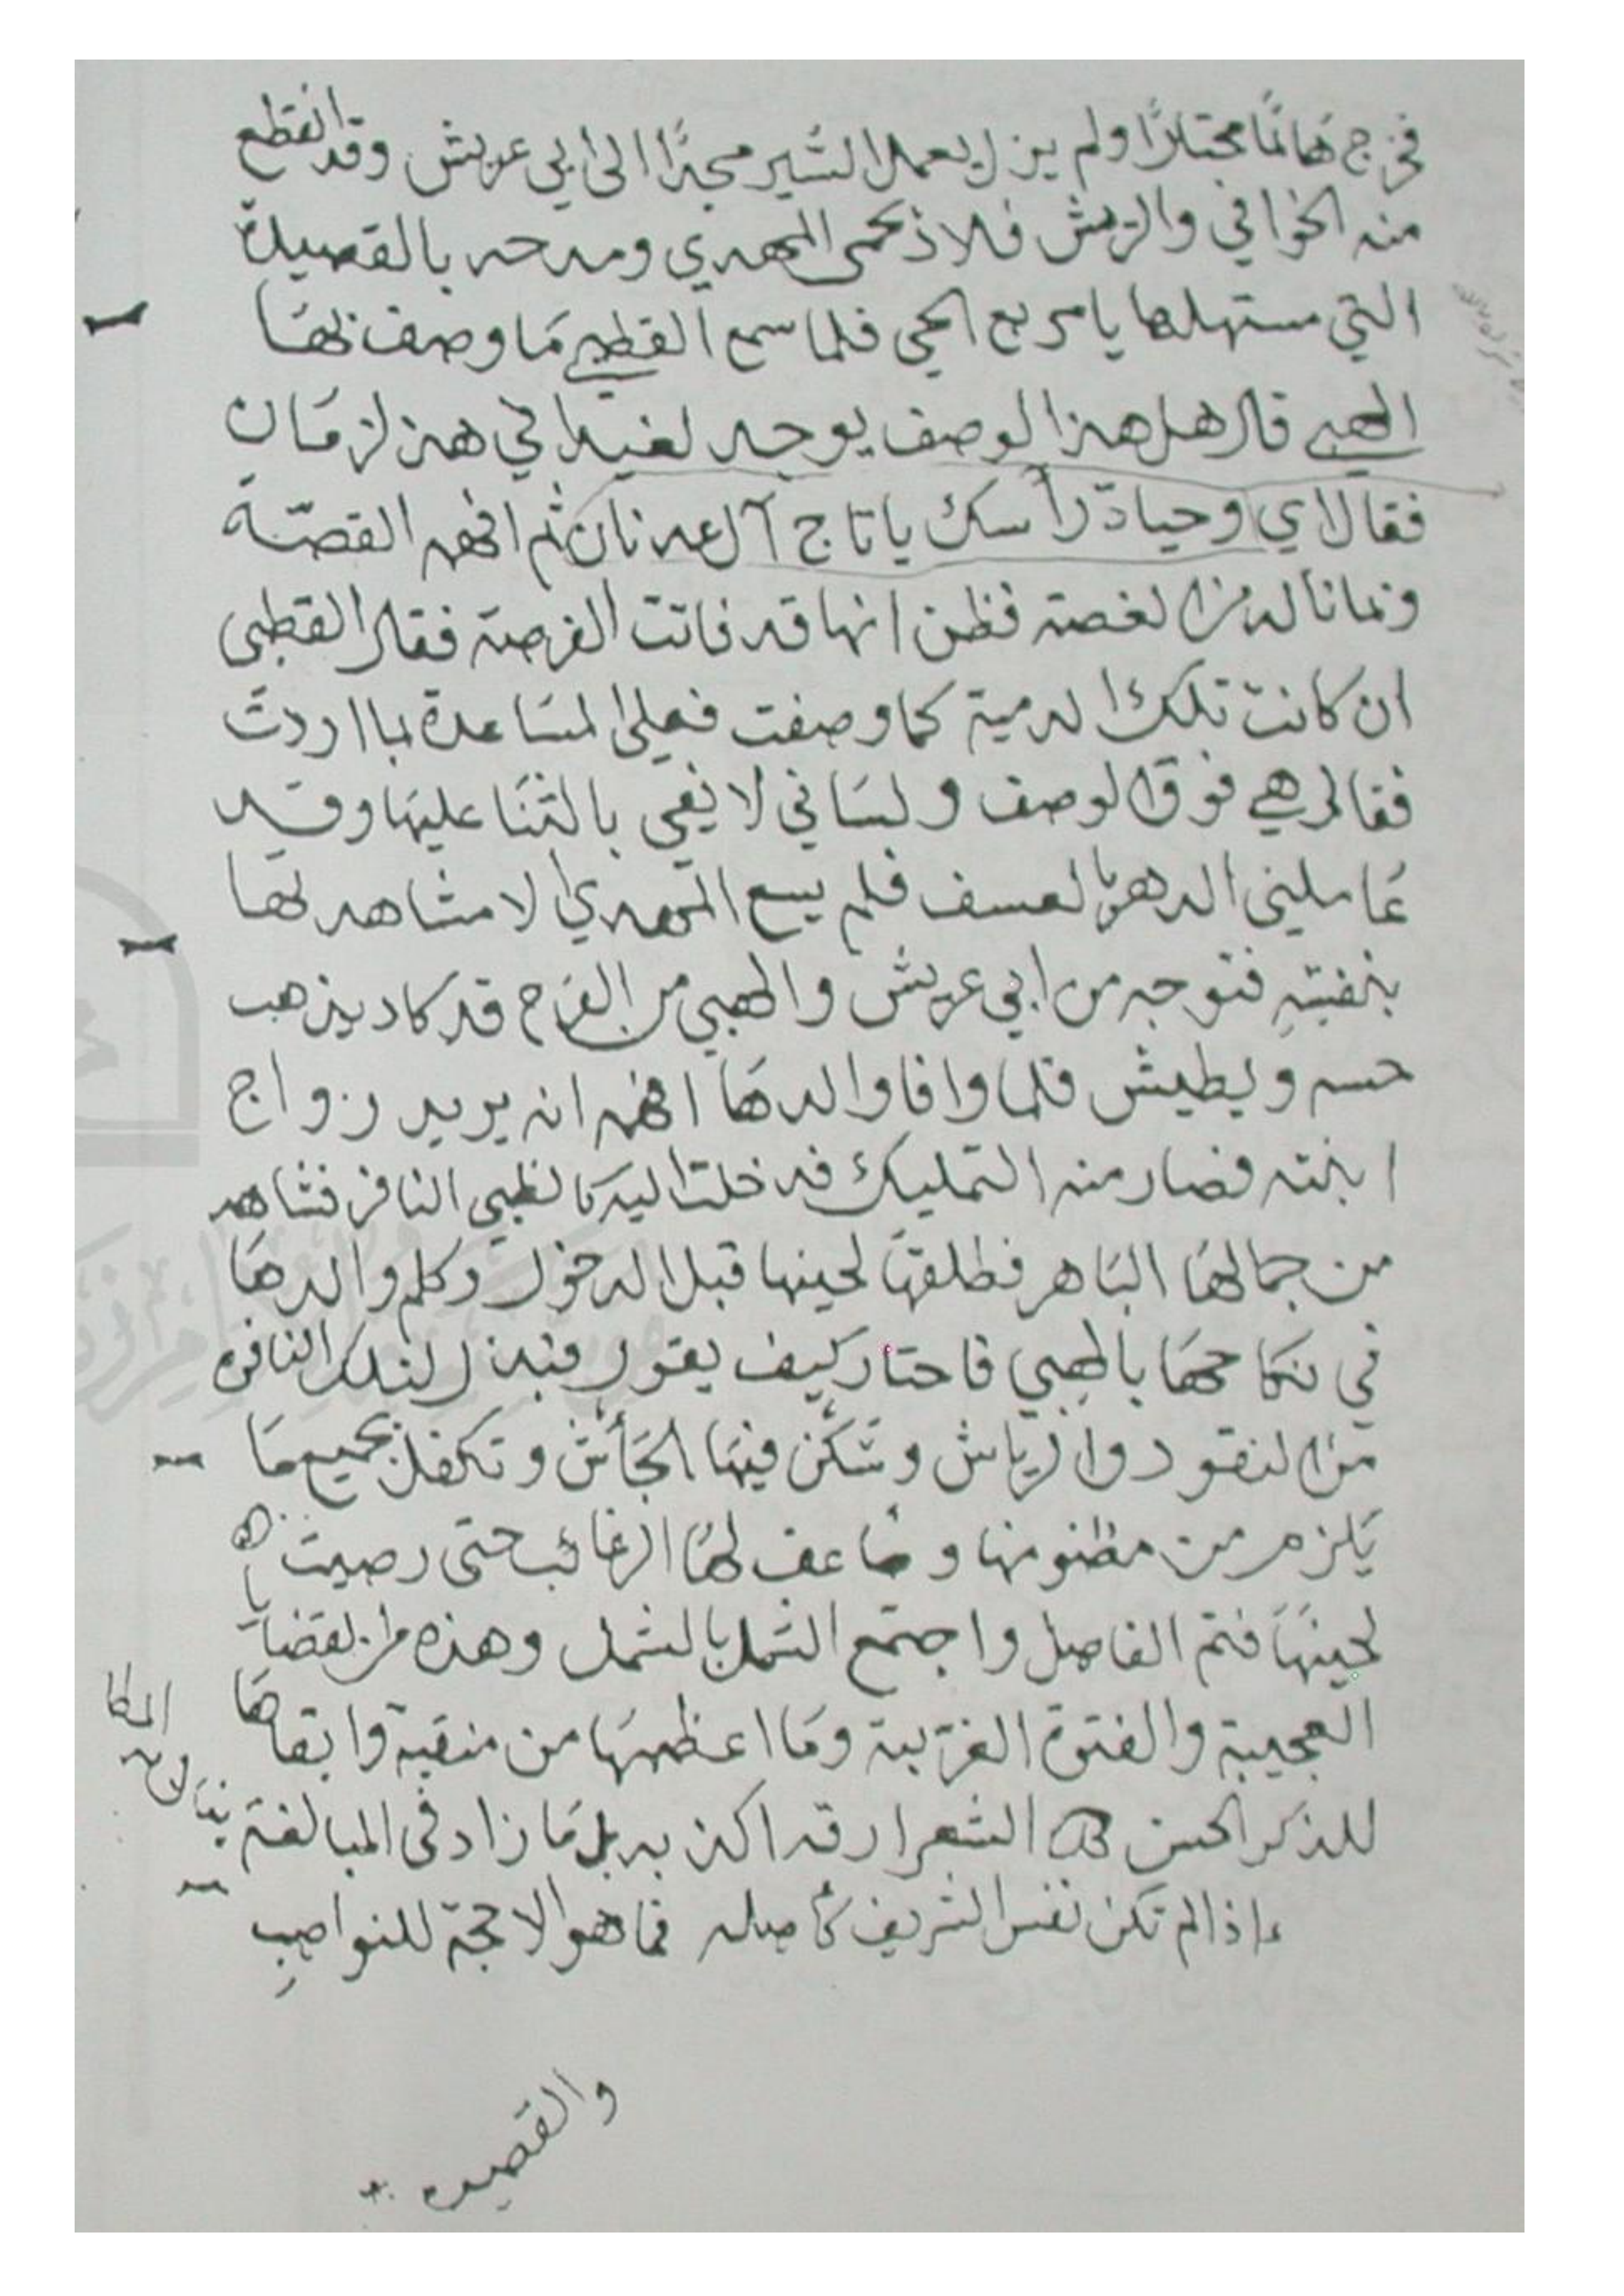 فخرج هَائمًا محتارًا ولم يزل يعمل السَّير مجدًّا الى ابي عريش وقد انقطع
منه الخوافي والريش فلاذ بحمى المهدي ومدحه بالقصيدة
التي مستهلها يا مربع الحي فلما سمع القطبي مَا وصف بهَا
الهبي قال هل هذا الوصف يوجد لغيدا في هذا الزمَان
فقال اي وحياة رأسك ياتاج آل عدنان ثم افهمه القصّة
وما ناله من الغصة فظن انها قد فاتت الفرصة فقال القطبي
ان كانت تلك الدمية كما وصفت فعلي المسَاعدة لما اردت
فقال هي فوق الوصف ولسَاني لا يفي بالثنَا عليهَا وقد
عَاملني الدهر بالعسف فلم يسع المهدي الا مشاهدتهَا
بنفسِه فتوجه من ابي عريش والهبي من الفرح قد كاد يذهب
حسه ويطيش فلما وافا والدهَا افهمه انه يريد زواج
ابنته فصار منه التمليك فدخلت اليه كالظبي النافر فشاهد
من جمالهَا البَاهر فطلقهَا لحينها قبل الدخول وكلم والدهَا
في نكاحهَا بالهبي فاحتار كيف يقول فبذل لتلك النافره
من النقود والرياش وسَكّن فيهَا الجَأش وتكفل بجميع مَا
يَلزم من مظنونها وضَاعف لهَا الرغائب حتى رضيت
لحينهَا فتم الفاصل واجتمع الشمل بالشمل وهذه من القضايا
العجيبة والفتوة الغرّيبة ومَا اعظمهَا من منقبة وابقاهَا
للذكر الحسن الشعرا وقد اكذبه بل مَا زاد في المبالغة
اذا لم تكن نفس الشريف كأصله فما هو الا حجة للنواصبِ
والقصيده